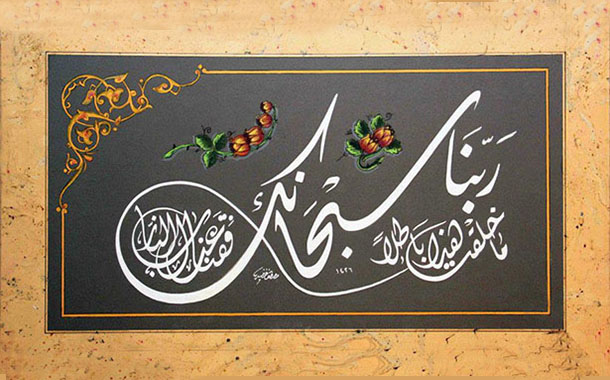 رَبَّنَا
ما خلقت هذا باطلاً
سبحانك
فقنا عذاب النار
١٤٢٦